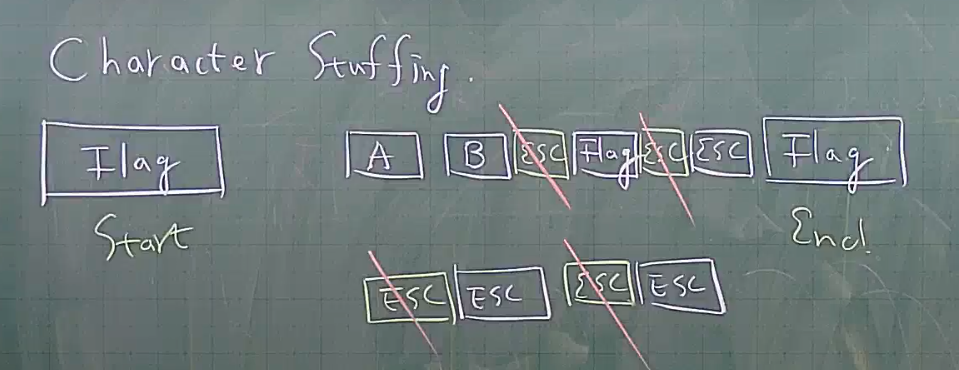 Character Stuffing.
Flag A B ESC Flag ESC ESC Flag
Start End
ESC ESC ESC ESC